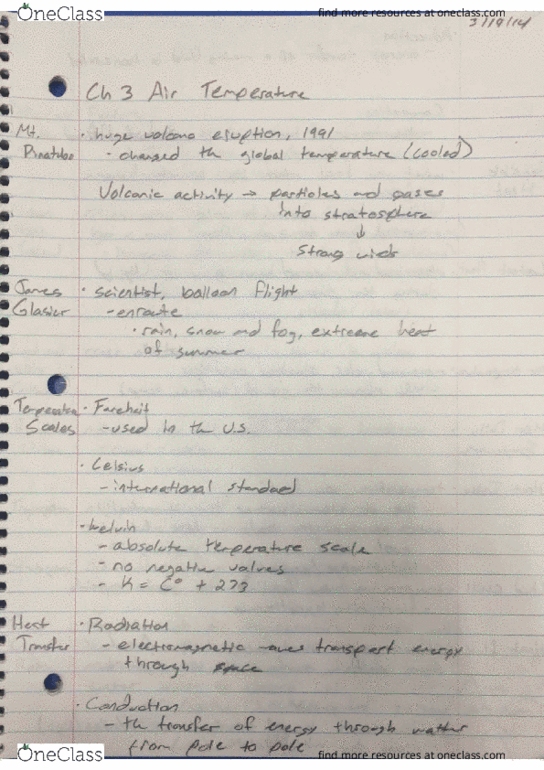 OneClass
find more resources at oneclass.com
3/19/14
Ch 3 Air Temperature
Mt. · huge volcano eruption, 1991
Pinatubo - changed th global temperature (cooled)
Volcanic activity → particles and gases
into stratosphere
↓
Strong winds
James · scientist, balloon flight
Glasier - enroute
· rain, snow and fog, extreme heat
of summer
Temperature · Fareheit
Scales - used in the U.S.
· Celsius
- international standard
· Kelvin
- absolute temperature scale
- no negative values
- K = C° + 273
Heat · Radiation
Transfer - electromagnetic waves transport energy
through space
· Conduction
- th transfer of energy through matter
from pole to pole
OneClass
find more resources at oneclass.com